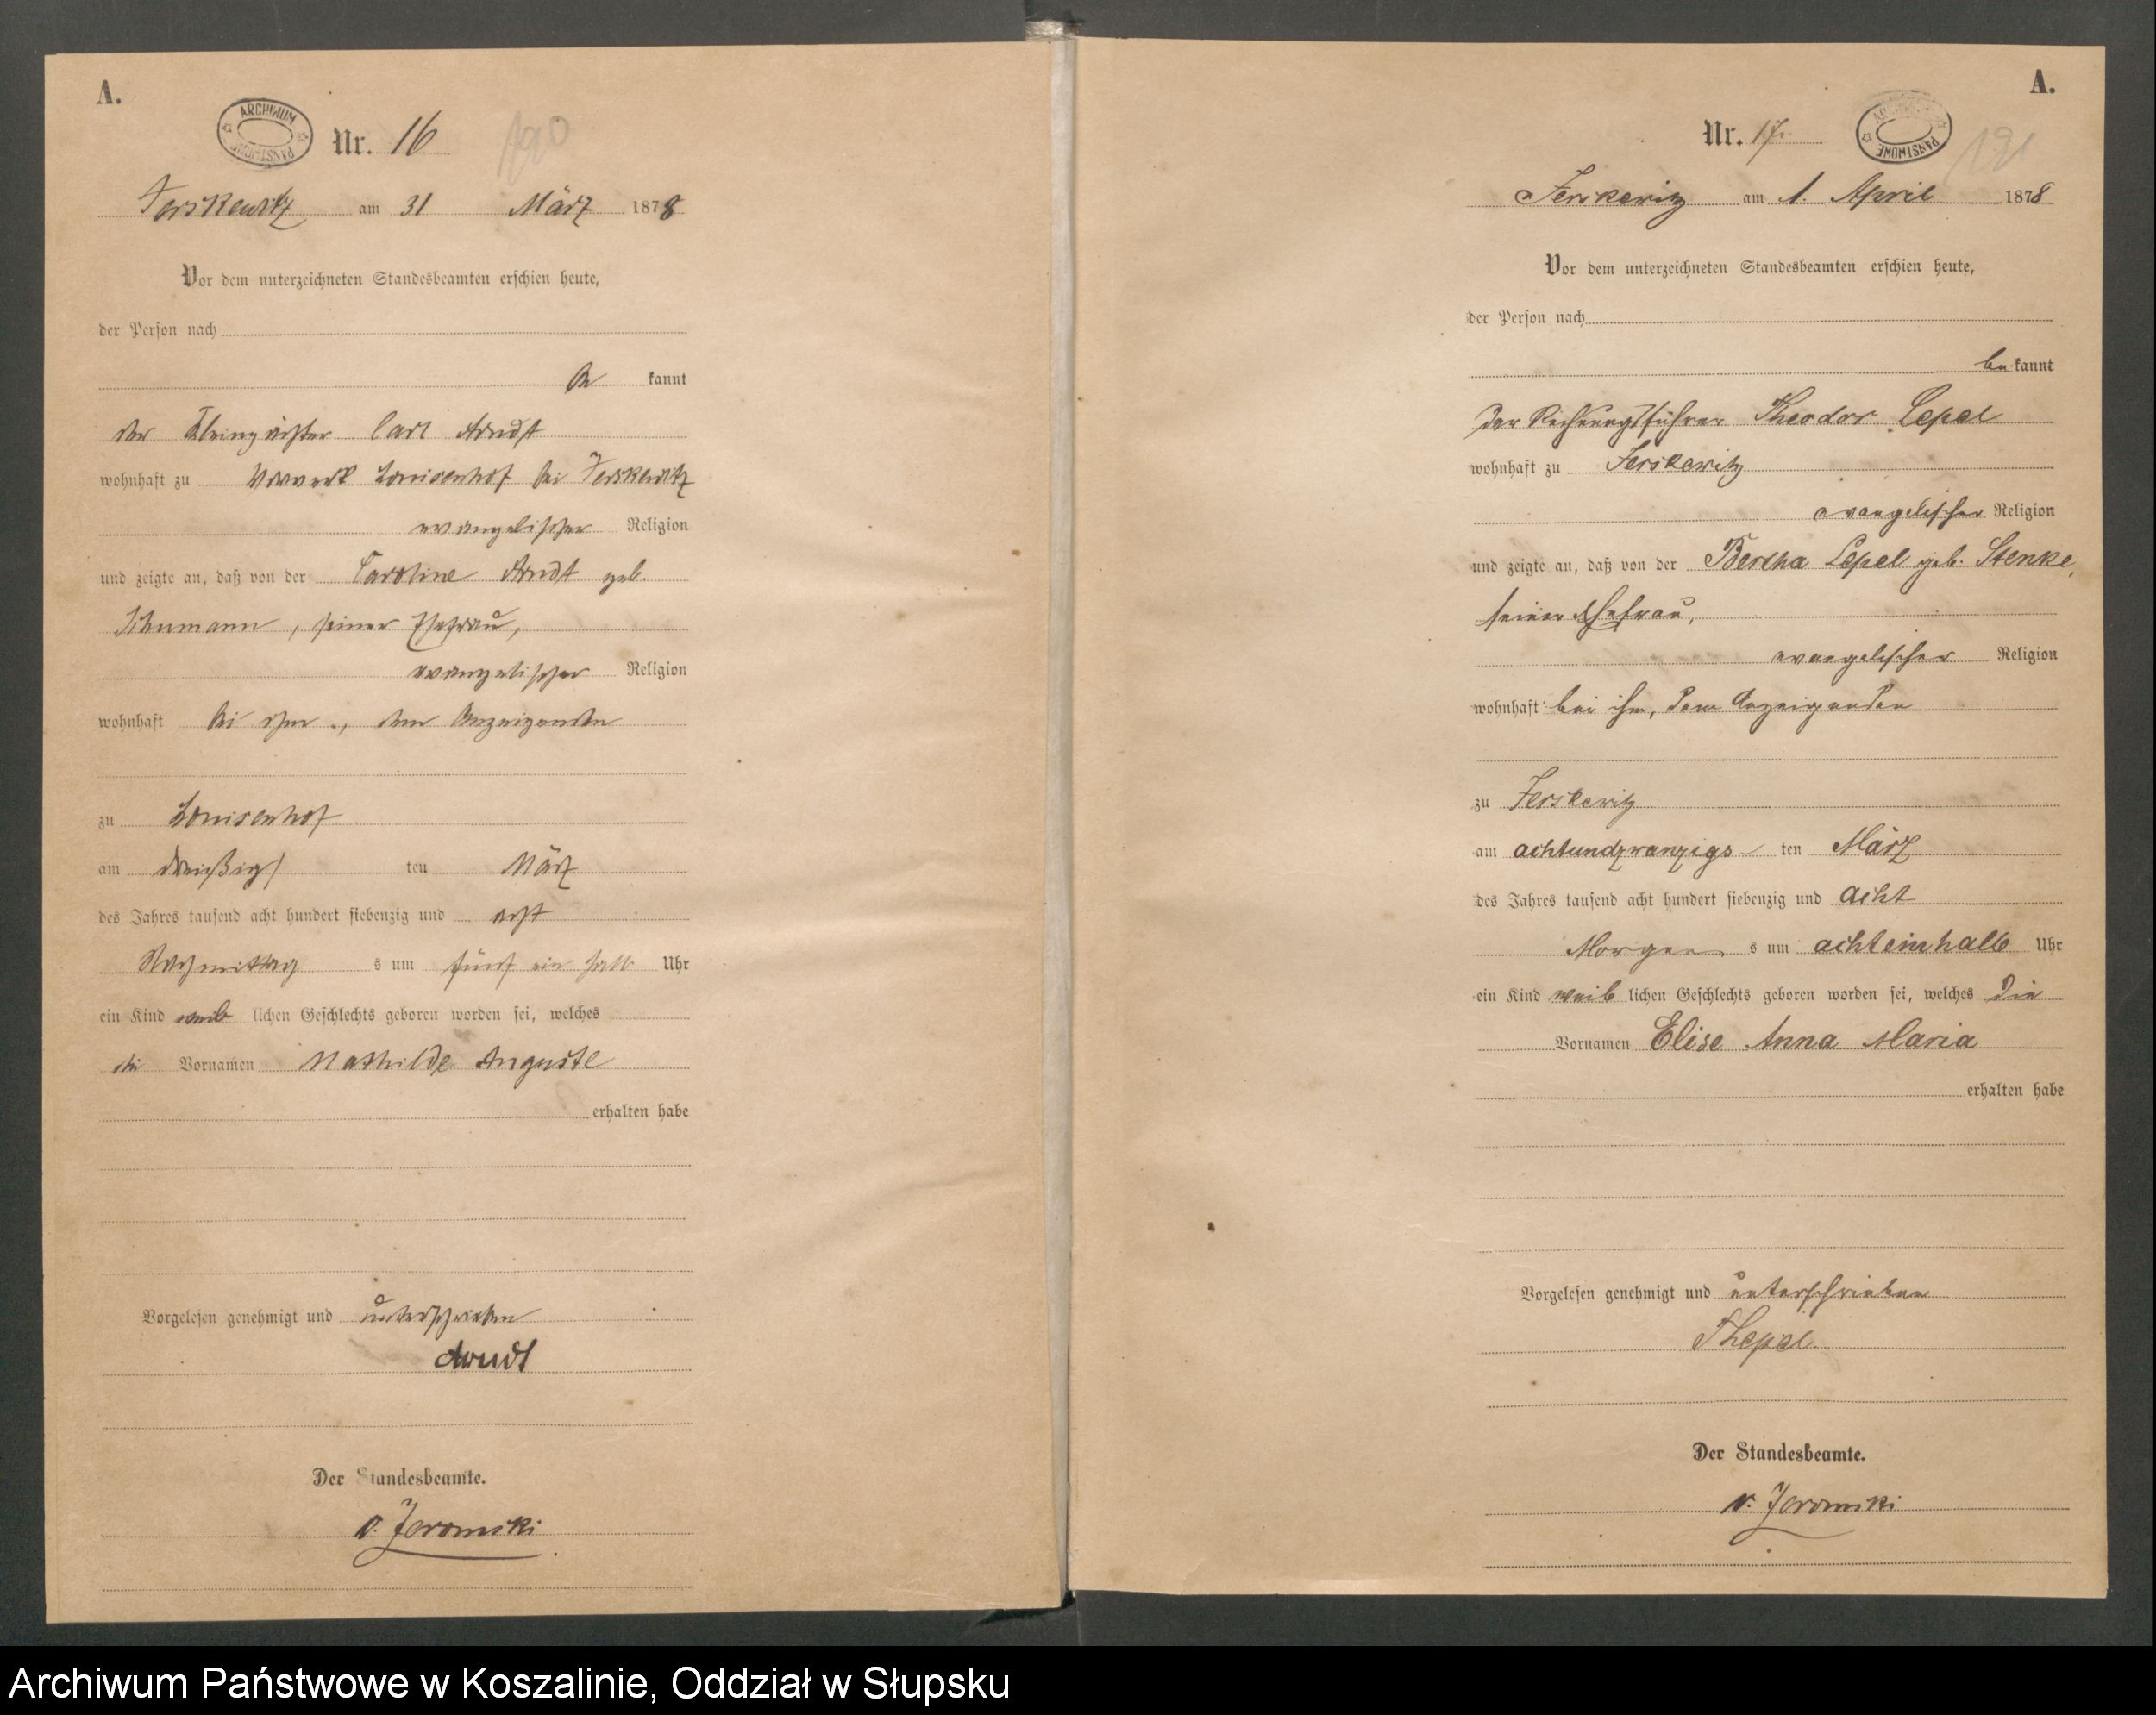 A.
ARCHIWUM PAŃSTWOWE
Nr. 16
190
Jerskewitz am 31 März 1878
Vor dem unterzeichneten Standesbeamten erschien heute,
der Person nach
be kannt
der Carl Arndt
wohnhaft zu Vorwerk Louisenhof bei Jerskewitz
evangelischer Religion
und zeigte an, daß von der Caroline Arndt geb.
Schumann, seiner Ehefrau,
evangelischer Religion
wohnhaft bei ihm, dem Anzeigenden
zu Louisenhof
am dreißigs ten März
des Jahres tausend acht hundert siebenzig und acht
Nachmittag s um fünf ein halb Uhr
ein Kind weib lichen Geschlechts geboren worden sei, welches
die Vornamen Mathilde Auguste
erhalten habe
Vorgelesen genehmigt und unterschrieben
Arndt
Der Standesbeamte.
v. Jeromski
A.
Nr. 17.
ARCHIWUM PAŃSTWOWE
191
Jerskewitz am 1. April 1878
Vor dem unterzeichneten Standesbeamten erschien heute,
der Person nach
be kannt
der Rechnungsführer Theodor Lepel
wohnhaft zu Jerskewitz
evangelischer Religion
und zeigte an, daß von der Bertha Lepel geb. Stenke,
seiner Ehefrau,
evangelischer Religion
wohnhaft bei ihm, dem Anzeigenden
zu Jerskewitz
am achtundzwanzigs ten März
des Jahres tausend acht hundert siebenzig und acht
Morgen s um achteinhalb Uhr
ein Kind weib lichen Geschlechts geboren worden sei, welches die
Vornamen Elise Anna Maria
erhalten habe
Vorgelesen genehmigt und unterschrieben
ThLepel.
Der Standesbeamte.
v. Jeromski
Archiwum Państwowe w Koszalinie, Oddział w Słupsku